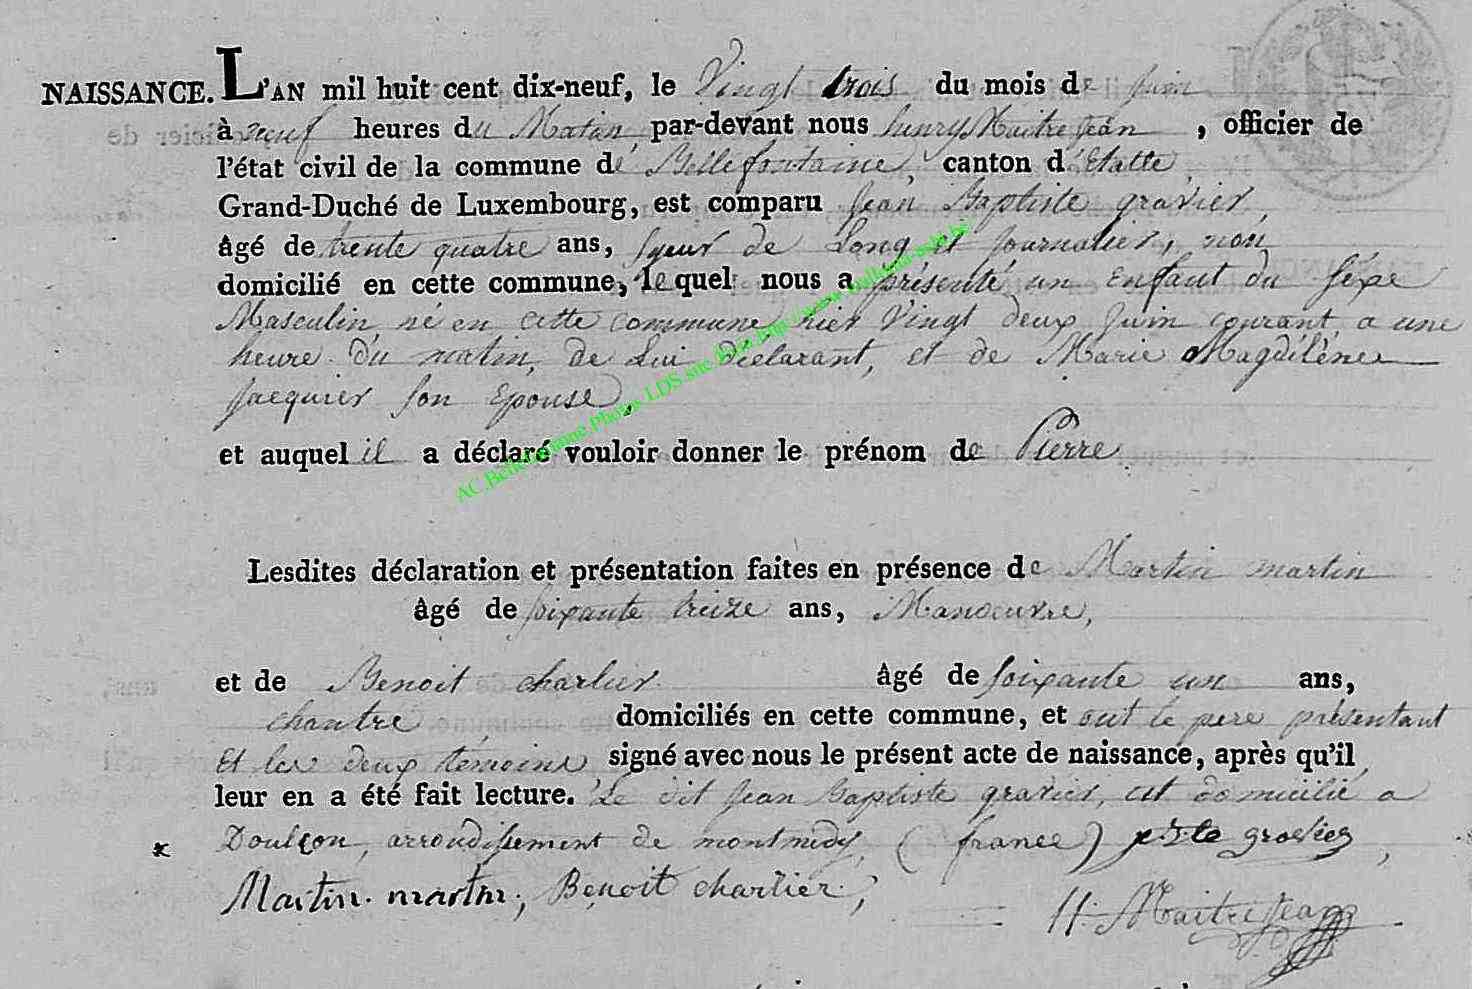 NAISSANCE. L'AN mil huit cent dix-neuf, le Vingt trois du mois de juin
à neuf heures du Matin, par-devant nous henry Maitrejean, officier de
l'état civil de la commune de Bellefontaine, canton d'Etalle,
Grand-Duché de Luxembourg, est comparu Jean Baptiste gravier,
âgé de trente quatre ans, syeur de Long et journalier, non
domicilié en cette commune, lequel nous a présenté un enfant du sexe
Masculin né en cette commune hier Vingt deux Juin courant, a une
heure du matin, de Lui déclarant, et de Marie Magdélène
jacquier son Epouse,
et auquel il a déclaré vouloir donner le prénom de Pierre
Lesdites déclaration et présentation faites en présence de Martin martin
âgé de soixante treize ans, Manoeuvre,
et de Benoit charlier âgé de soixante un ans,
chantre, domiciliés en cette commune, et ont le pere présentant
Et les deux témoins signé avec nous le présent acte de naissance, après qu'il
leur en a été fait lecture. Le dit Jean Baptiste gravier, est domicilié a
Doulçon, arrondissement de montmédy, (france)
Martin. martin; Benoit charlier;
H. Maitrejean
AC Bellefontaine Photos LDS